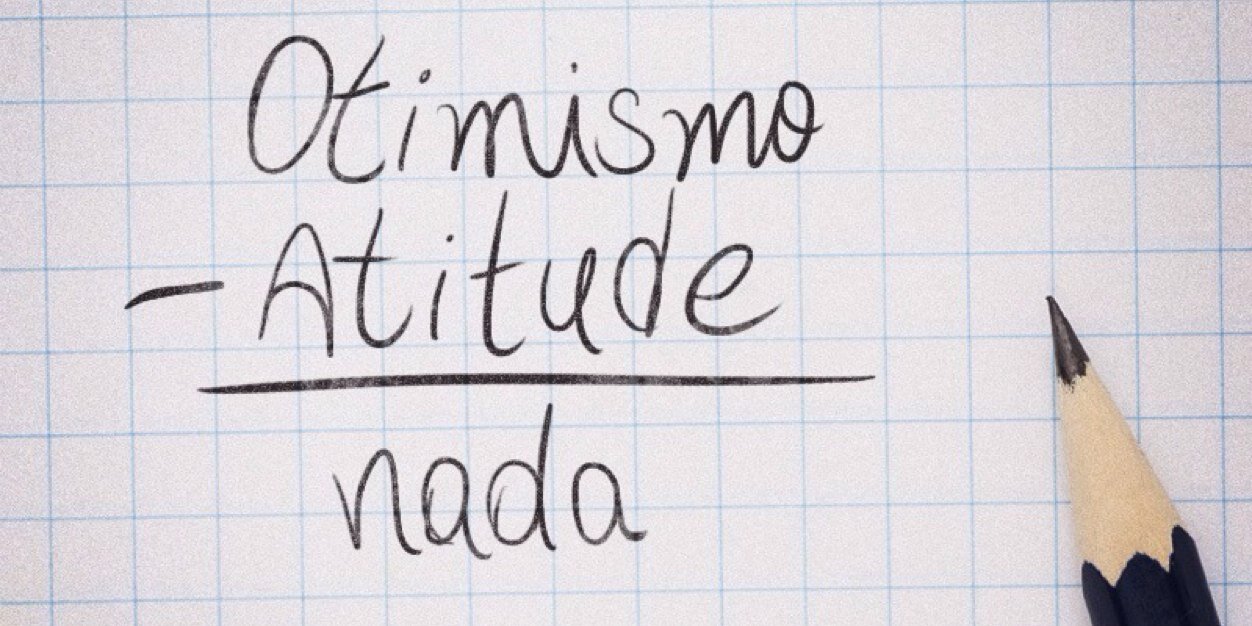 Otimismo
- Atitude
nada